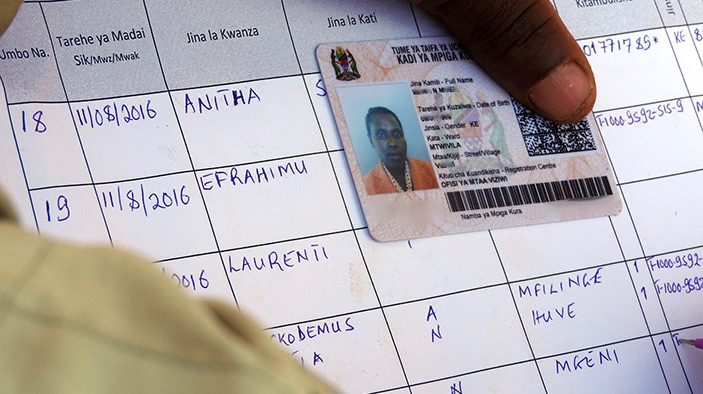 Umbo Na.
Tarehe ya Madai
Sik/Mwz/Mwak
Jina la Kwanza
Jina la Kati
18
11/08/2016
ANITHA
S
01771785* KE 8
T-1000-9592-515-9
19
11/8/2016
EFRAHIMU
2016
LAURENTI
KODEMUS
A
N
MFILINGE
IHUVE
1
1
T-1000-9592-
T-1000-959
MGENI
1
N
TUME YA TAIFA YA UC
KADI YA MPIGA KU
Jina Kamili - Full Name
Tarehe ya Kuzaliwa - Date of Birth
Jinsia - Gender KE
Kata - Ward
MTWIVILA
Mtaa/Kijiji - Street/Village
Kituo cha Kuandikisha - Registration Centre
OFISI YA MTAA VIZIWI
Namba ya Mpiga Kura